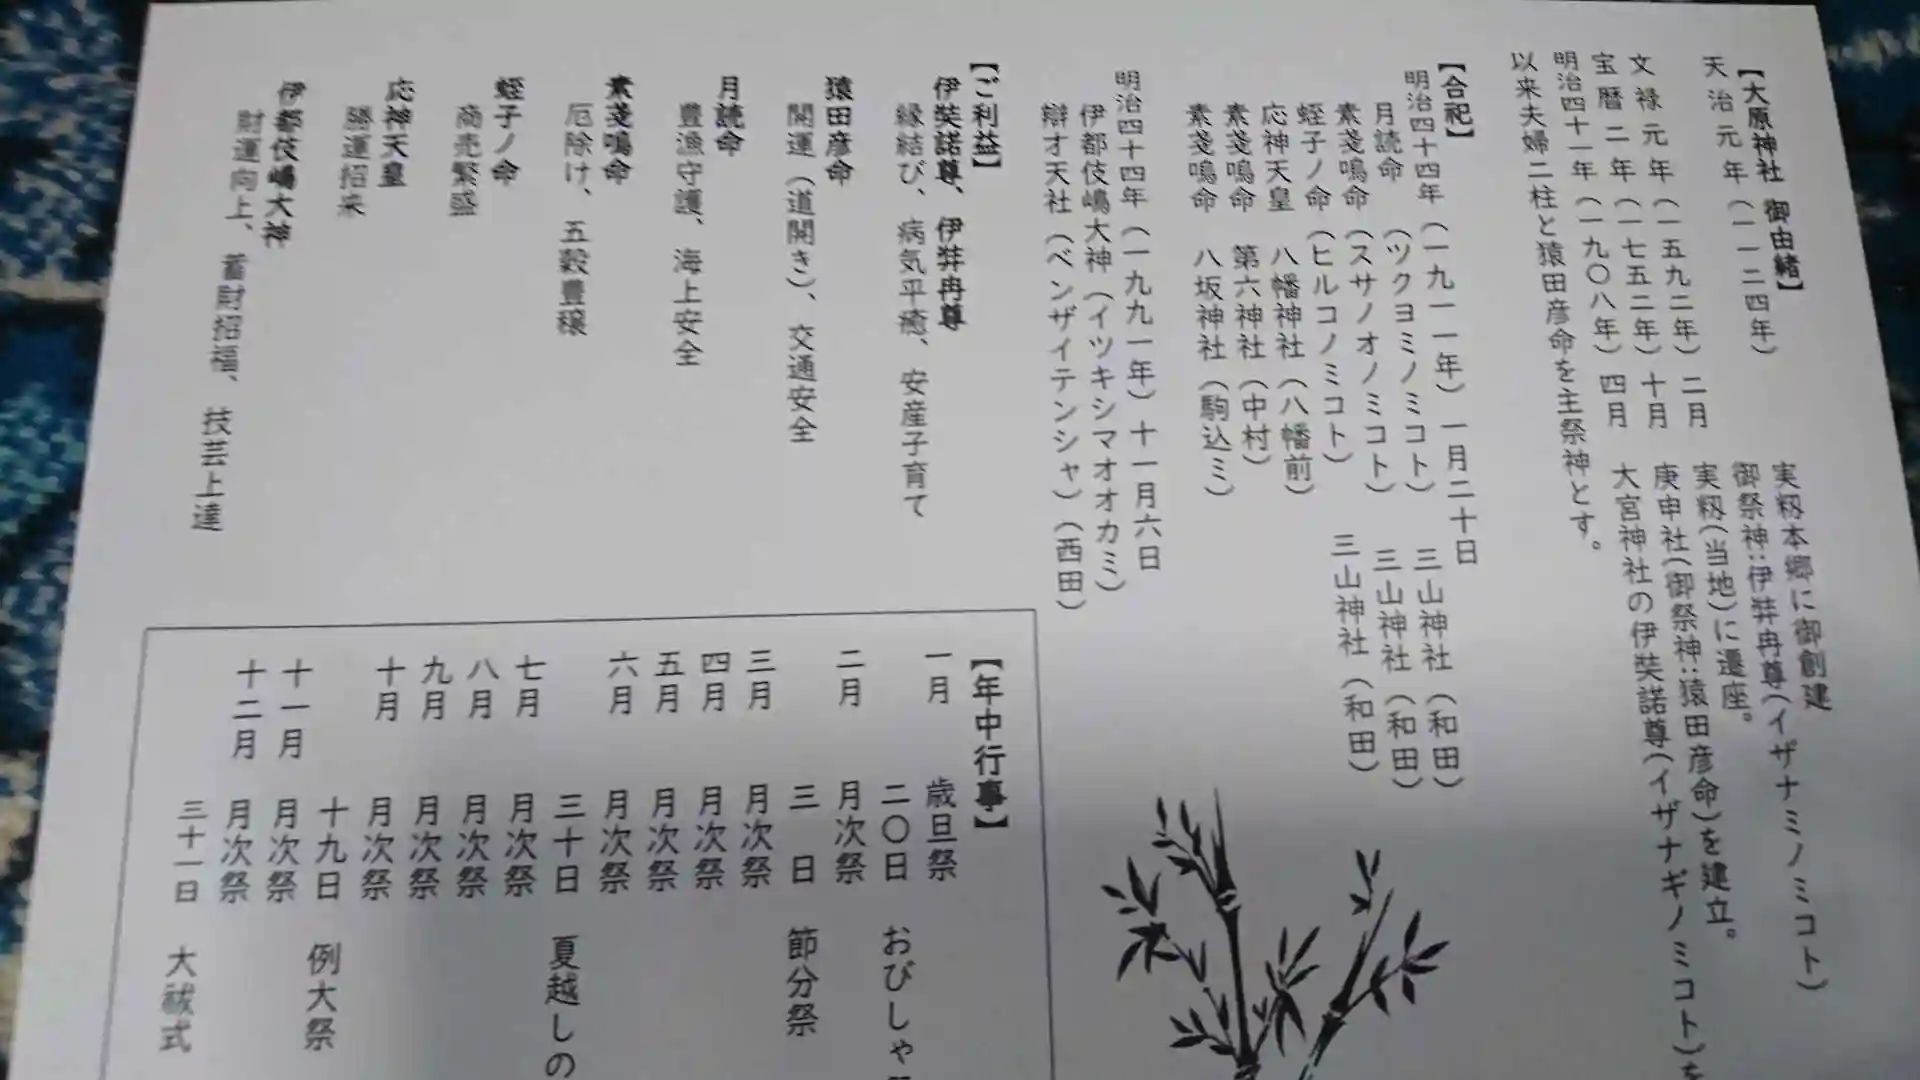 【大原神社 御由緒】
天治元年(一一二四年)
実籾本郷に御創建
御祭神:伊弉冉尊(イザナミノミコト)
文禄元年(一五九二年)二月
実籾(当地)に遷座。
宝暦二年(一七五二年)十月
庚申社(御祭神:猿田彦命)を建立。
明治四十一年(一九〇八年)四月
大宮神社の伊弉諾尊(イザナギノミコト)を
以来夫婦二柱と猿田彦命を主祭神とす。
【合祀】
明治四十四年(一九一一年)一月二十日
月読命(ツクヨミノミコト)三山神社(和田)
素戔鳴命(スサノオノミコト)三山神社(和田)
蛭子ノ命(ヒルコノミコト)三山神社(和田)
応神天皇 八幡神社(八幡前)
素戔鳴命 第六神社(中村)
素戔鳴命 八坂神社(駒込ミ)
明治四十四年(一九九一年)十一月六日
伊都伎嶋大神(イツキシマオオカミ)
辯才天社(ベンザイテンシャ)(西田)
【ご利益】
伊弉諾尊、伊弉冉尊
縁結び、病気平癒、安産子育て
猿田彦命
開運(道開き)、交通安全
月読命
豊漁守護、海上安全
素戔鳴命
厄除け、五穀豊穣
蛭子ノ命
商売繁盛
応神天皇
勝運招来
伊都伎嶋大神
財運向上、蓄財招福、技芸上達
【年中行事】
一月 歳旦祭
二〇日 おびしゃ
二月 月次祭
三日 節分祭
三月 月次祭
四月 月次祭
五月 月次祭
六月 月次祭
三十日 夏越しの
七月 月次祭
八月 月次祭
九月 月次祭
十月 月次祭
十九日 例大祭
十一月 月次祭
十二月 月次祭
三十一日 大祓式